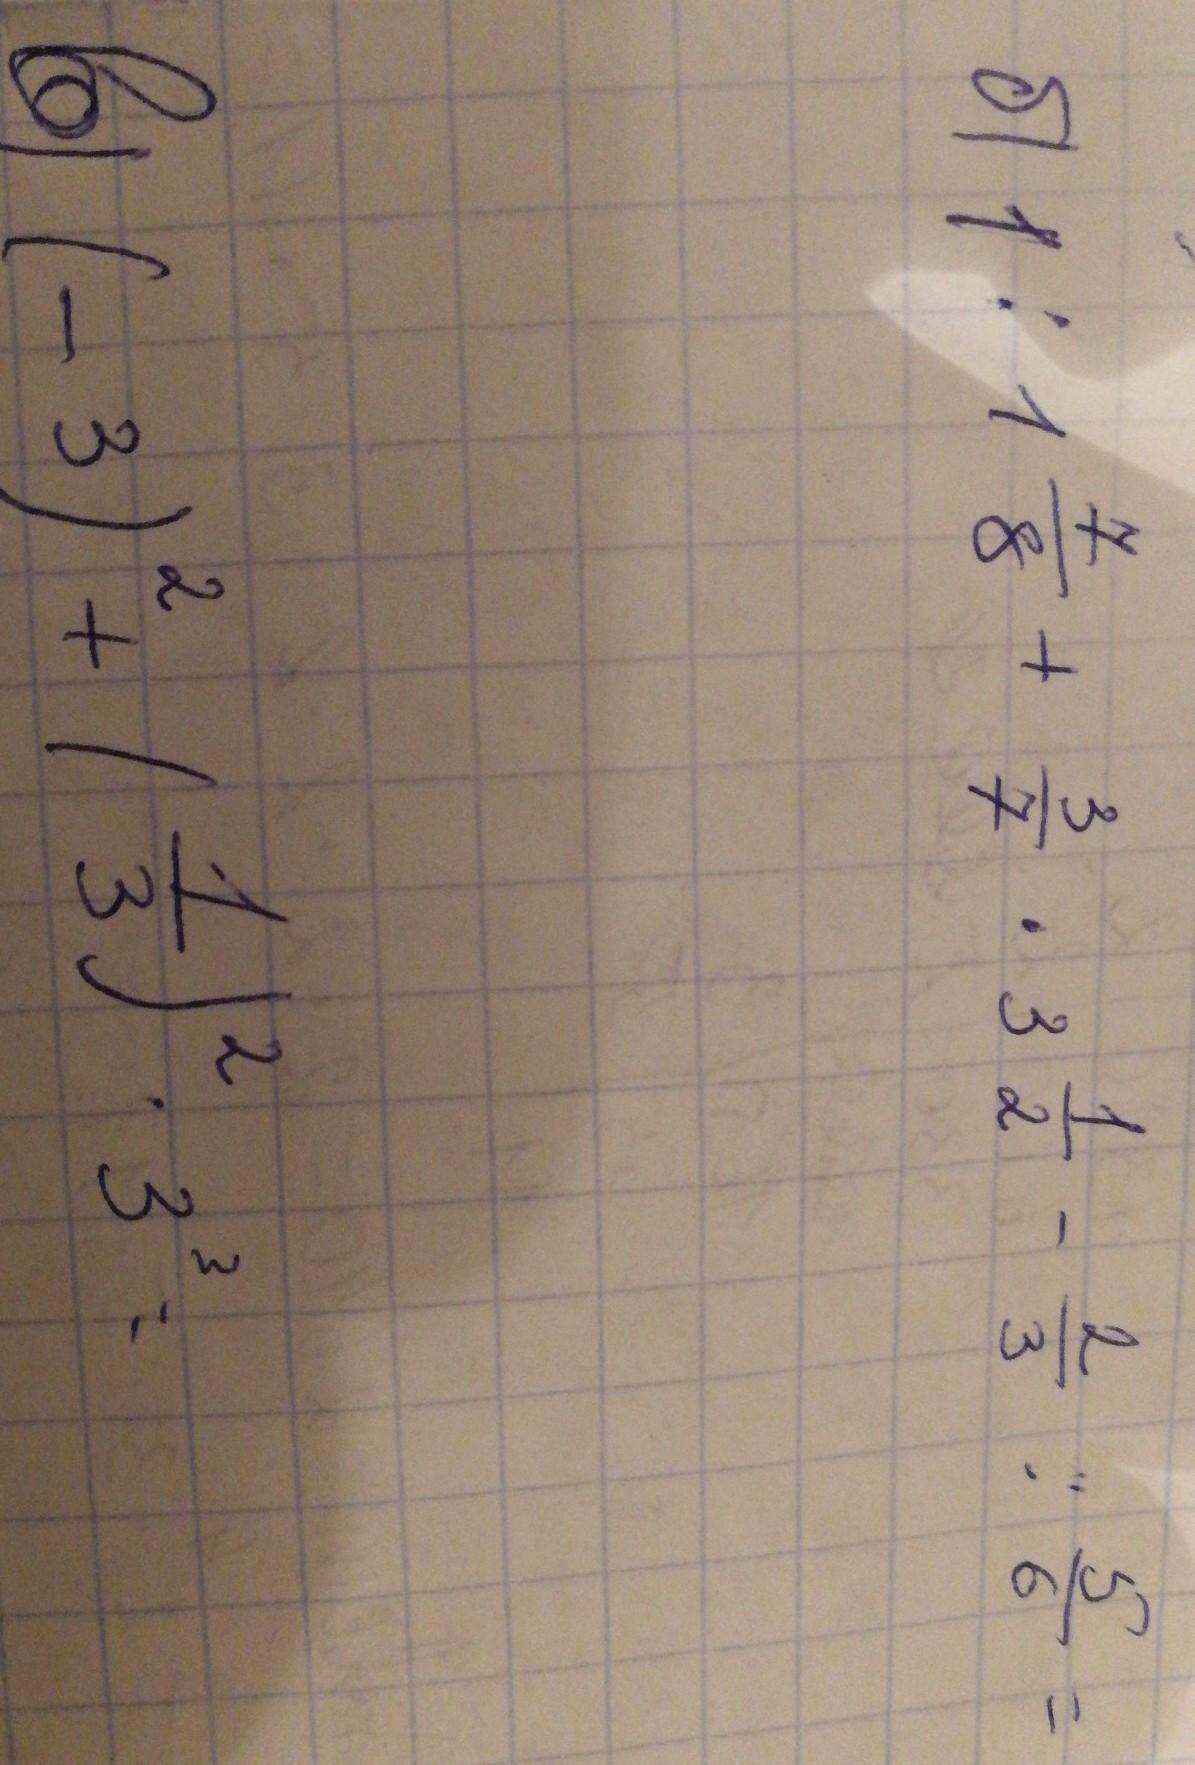 б) 1 : 1 7/8 + 3/7 · 3 1/2 - 2/3 : 5/6 =
в) (-3)² + (1/3)² · 3³ =